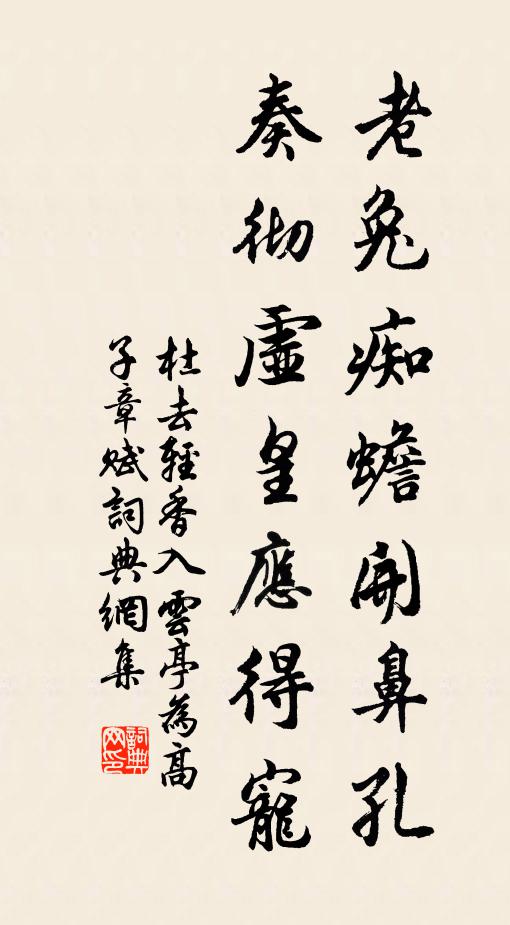 老兔痴蟾開鼻孔
奏彻虛皇應得寵
桂去輕香入雲亭為高
子章賦詞典網集
詞典网印